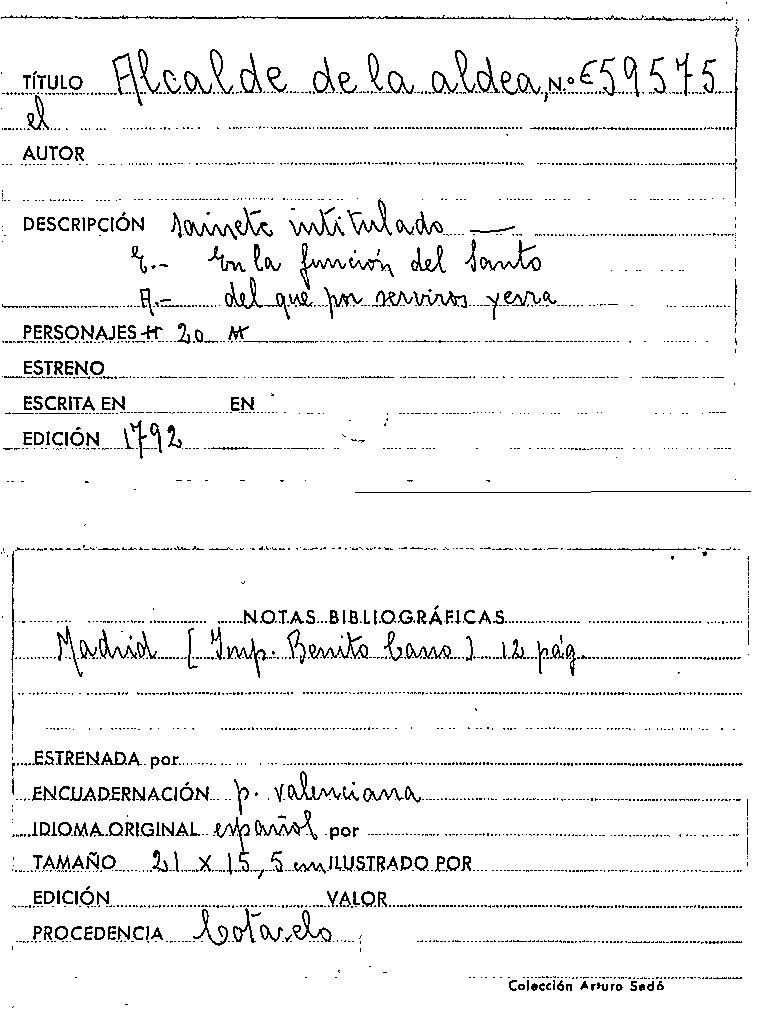 TÍTULO Alcalde de la aldea, N.º E 59575
el
AUTOR
DESCRIPCIÓN sainete intitulado —
E.- En la función del Santo
A.- del que por serviros yerra
PERSONAJES H 20 M
ESTRENO
ESCRITA EN EN
EDICIÓN 1792
NOTAS BIBLIOGRÁFICAS
Madrid [Imp. Benito Cano] 12 pág.
ESTRENADA por
ENCUADERNACIÓN p. valenciana
IDIOMA ORIGINAL español por
TAMAÑO 21 x 15,5 cm ILUSTRADO POR
EDICIÓN VALOR
PROCEDENCIA Cotarelo
Colección Arturo Sedó